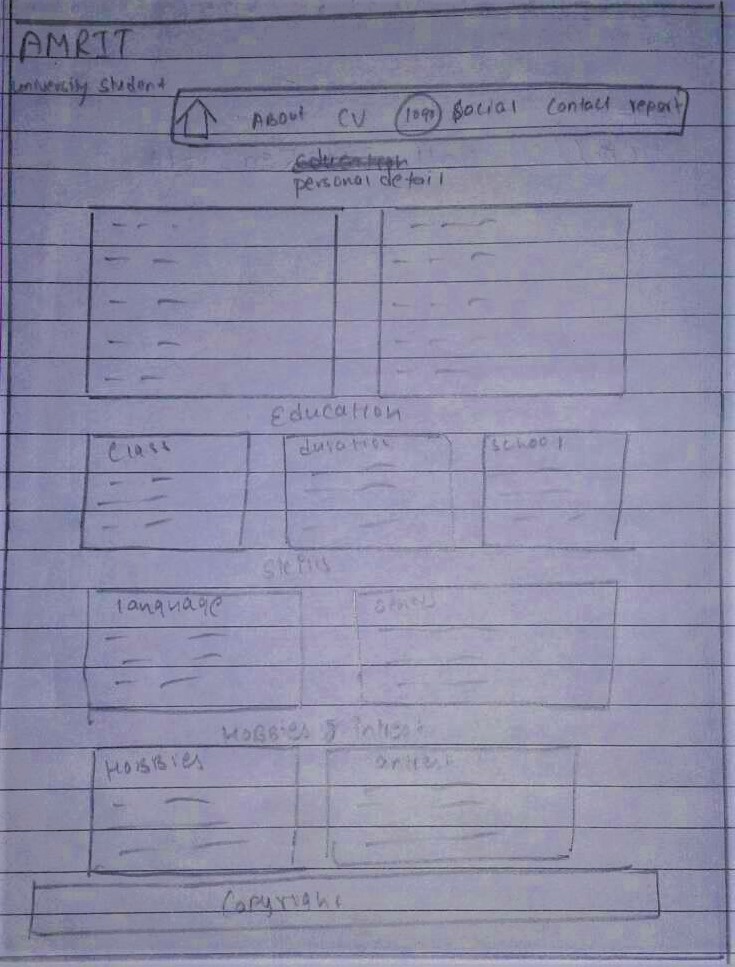 AMRIT
University Student
About CV logo Social Contact report
personal detail
Education
Class duration School
Skills
language others
HOBBIES & intrest
HOBBIES intrest
Copyright